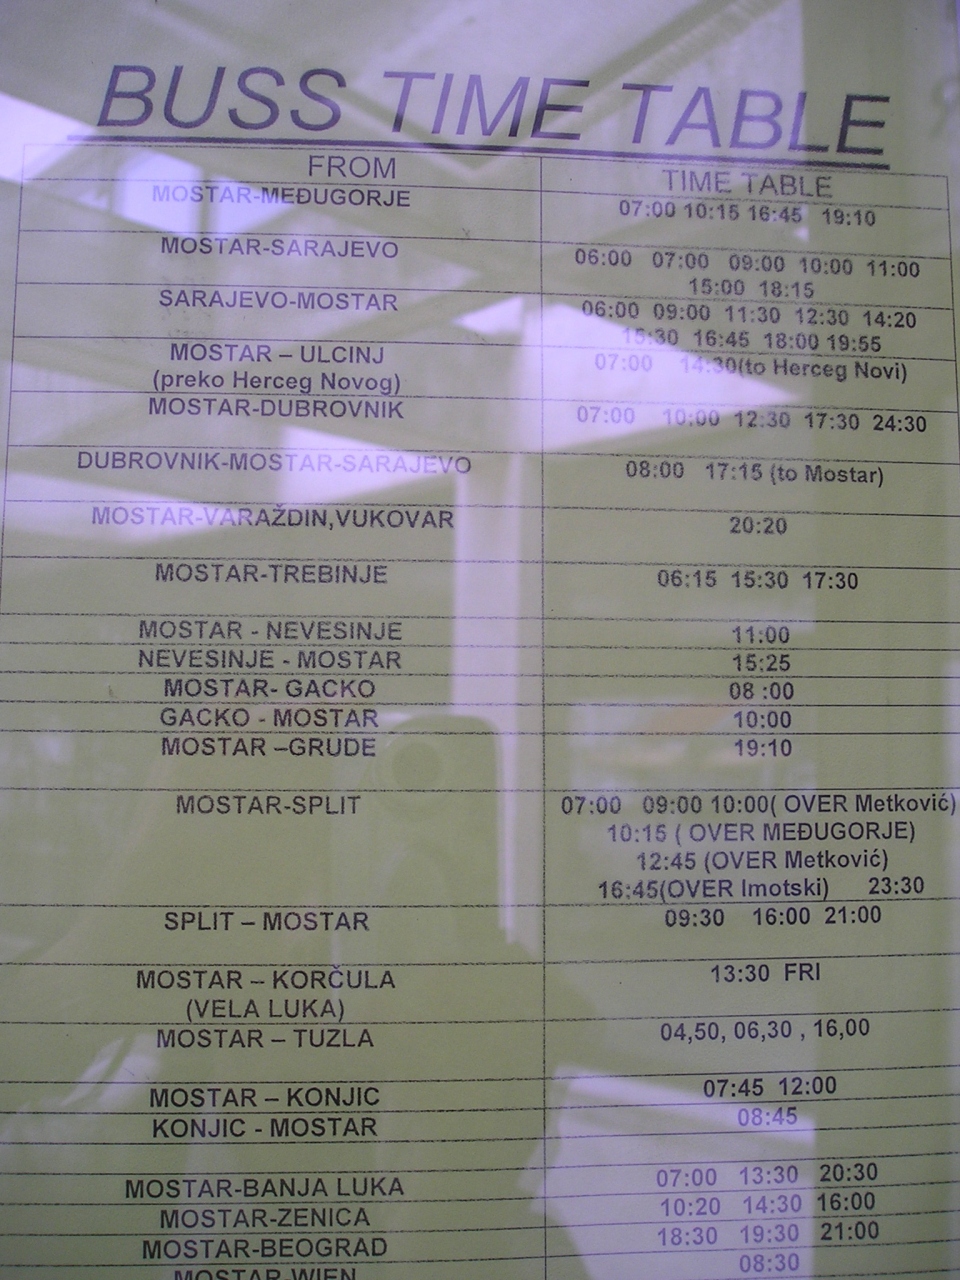 BUSS TIME TABLE
FROM TIME TABLE
MOSTAR-MEĐUGORJE 07:00 10:15 16:45 19:10
MOSTAR-SARAJEVO 06:00 07:00 09:00 10:00 11:00
15:00 18:15
SARAJEVO-MOSTAR 06:00 09:00 11:30 12:30 14:20
15:30 16:45 18:00 19:55
MOSTAR – ULCINJ 07:00 14:30(to Herceg Novi)
(preko Herceg Novog)
MOSTAR-DUBROVNIK 07:00 10:00 12:30 17:30 24:30
DUBROVNIK-MOSTAR-SARAJEVO 08:00 17:15 (to Mostar)
MOSTAR-VARAŽDIN,VUKOVAR 20:20
MOSTAR-TREBINJE 06:15 15:30 17:30
MOSTAR - NEVESINJE 11:00
NEVESINJE - MOSTAR 15:25
MOSTAR- GACKO 08 :00
GACKO - MOSTAR 10:00
MOSTAR –GRUDE 19:10
MOSTAR-SPLIT 07:00 09:00 10:00( OVER Metković)
10:15 ( OVER MEĐUGORJE)
12:45 (OVER Metković)
16:45(OVER Imotski) 23:30
SPLIT – MOSTAR 09:30 16:00 21:00
MOSTAR – KORČULA 13:30 FRI
(VELA LUKA)
MOSTAR – TUZLA 04,50, 06,30 , 16,00
MOSTAR – KONJIC 07:45 12:00
KONJIC - MOSTAR 08:45
MOSTAR-BANJA LUKA 07:00 13:30 20:30
MOSTAR-ZENICA 10:20 14:30 16:00
MOSTAR-BEOGRAD 18:30 19:30 21:00
MOSTAR-WIEN 08:30